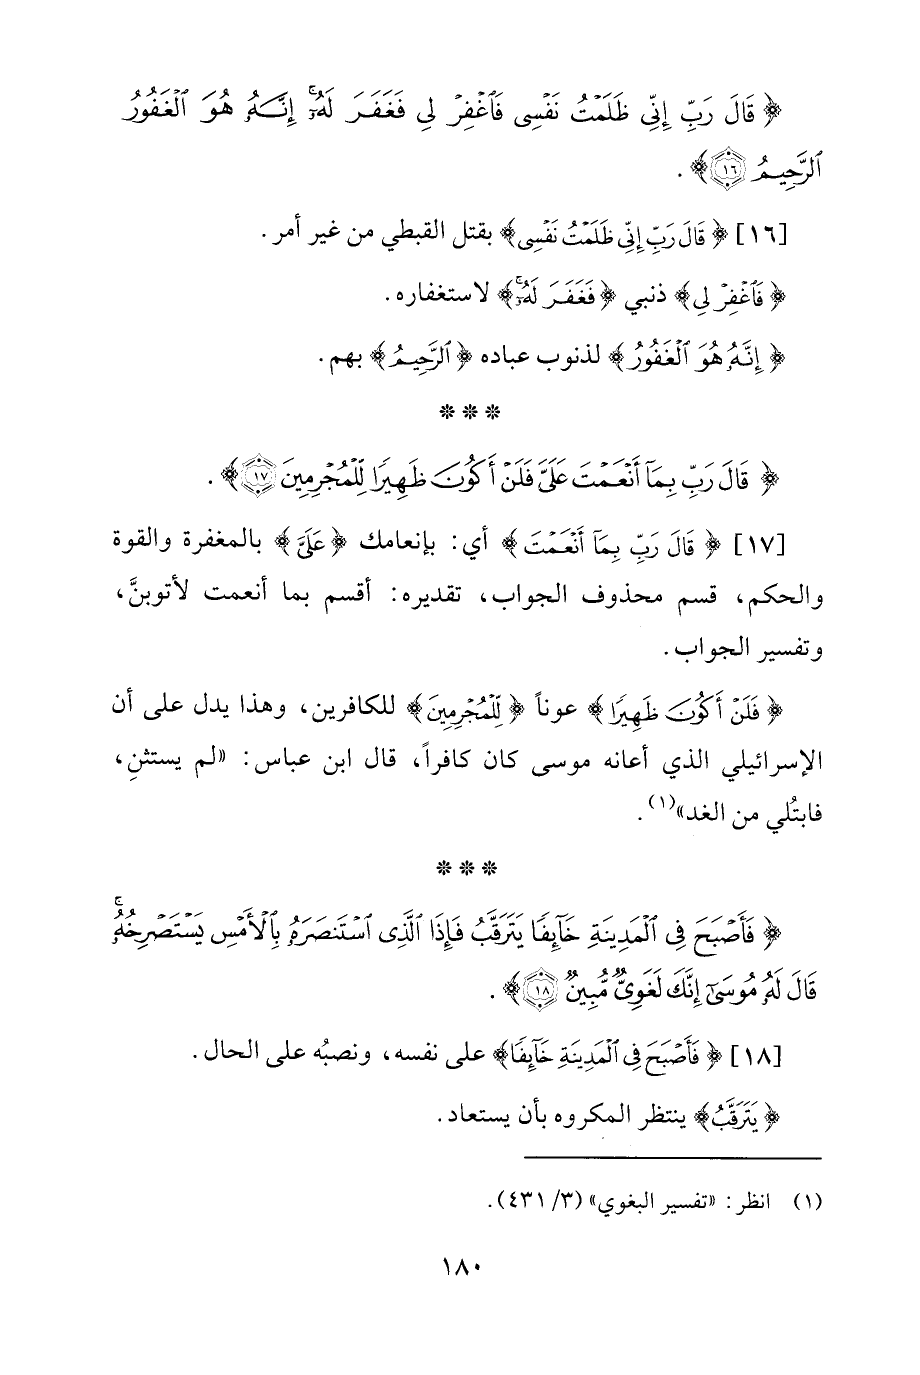 ﴿ قَالَ رَبِّ إِنِّي ظَلَمْتُ نَفْسِي فَاغْفِرْ لِي فَغَفَرَ لَهُۥٓ ۚ إِنَّهُۥ هُوَ ٱلْغَفُورُ
ٱلرَّحِيمُ ١٦﴾ .
[١٦] ﴿ قَالَ رَبِّ إِنِّي ظَلَمْتُ نَفْسِي﴾ بقتل القبطي من غير أمر .
﴿ فَاغْفِرْ لِي﴾ ذنبي ﴿ فَغَفَرَ لَهُۥٓ ۚ﴾ لاستغفاره .
﴿ إِنَّهُۥ هُوَ ٱلْغَفُورُ ﴾ لذنوب عباده ﴿ ٱلرَّحِيمُ ﴾ بهم .
* * *
﴿ قَالَ رَبِّ بِمَآ أَنْعَمْتَ عَلَىَّ فَلَنْ أَكُونَ ظَهِيرًا لِّلْمُجْرِمِينَ ١٧﴾ .
[١٧] ﴿ قَالَ رَبِّ بِمَآ أَنْعَمْتَ ﴾ أي : بإنعامك ﴿عَلَىَّ ﴾ بالمغفرة والقوة
والحكم، قسم محذوف الجواب، تقديره: أقسم بما أنعمت لأتوبنَّ،
وتفسير الجواب .
﴿ فَلَنْ أَكُونَ ظَهِيرًا ﴾ عوناً ﴿ لِّلْمُجْرِمِينَ﴾ للكافرين، وهذا يدل على أن
الإسرائيلي الذي أعانه موسى كان كافراً، قال ابن عباس: «لم يستثنِ،
فابتُلي من الغد»(١) .
* * *
﴿ فَأَصْبَحَ فِى ٱلْمَدِينَةِ خَآئِفًا يَتَرَقَّبُ فَإِذَا ٱلَّذِى ٱسْتَنصَرَهُۥ بِٱلْأَمْسِ يَسْتَصْرِخُهُۥ ۚ
قَالَ لَهُۥ مُوسَىٰٓ إِنَّكَ لَغَوِىٌّ مُّبِينٌ ١٨﴾ .
[١٨] ﴿ فَأَصْبَحَ فِى ٱلْمَدِينَةِ خَآئِفًا﴾ على نفسه، ونصبُه على الحال .
﴿ يَتَرَقَّبُ﴾ ينتظر المكروه بأن يستعاد .
(١) انظر : «تفسير البغوي» (٣/ ٤٣١) .
١٨٠